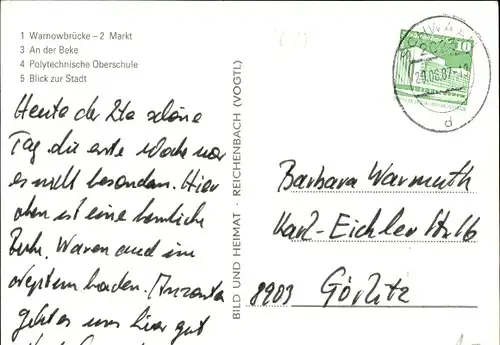 1 Warnowbrücke – 2 Markt
3 An der Beke
4 Polytechnische Oberschule
5 Blick zur Stadt
Heute der 2te schöne
Tag die erste Woche war
es nicht besonders. Hier
oben ist eine herrliche
Ruhe. Waren auch im
baden.
geht es uns hier gut
BILD UND HEIMAT · REICHENBACH (VOGTL)
10
SCHWAAN
20.06.87
d
Barbara Warmuth
Karl-Eichler Str 16
8903 Görlitz